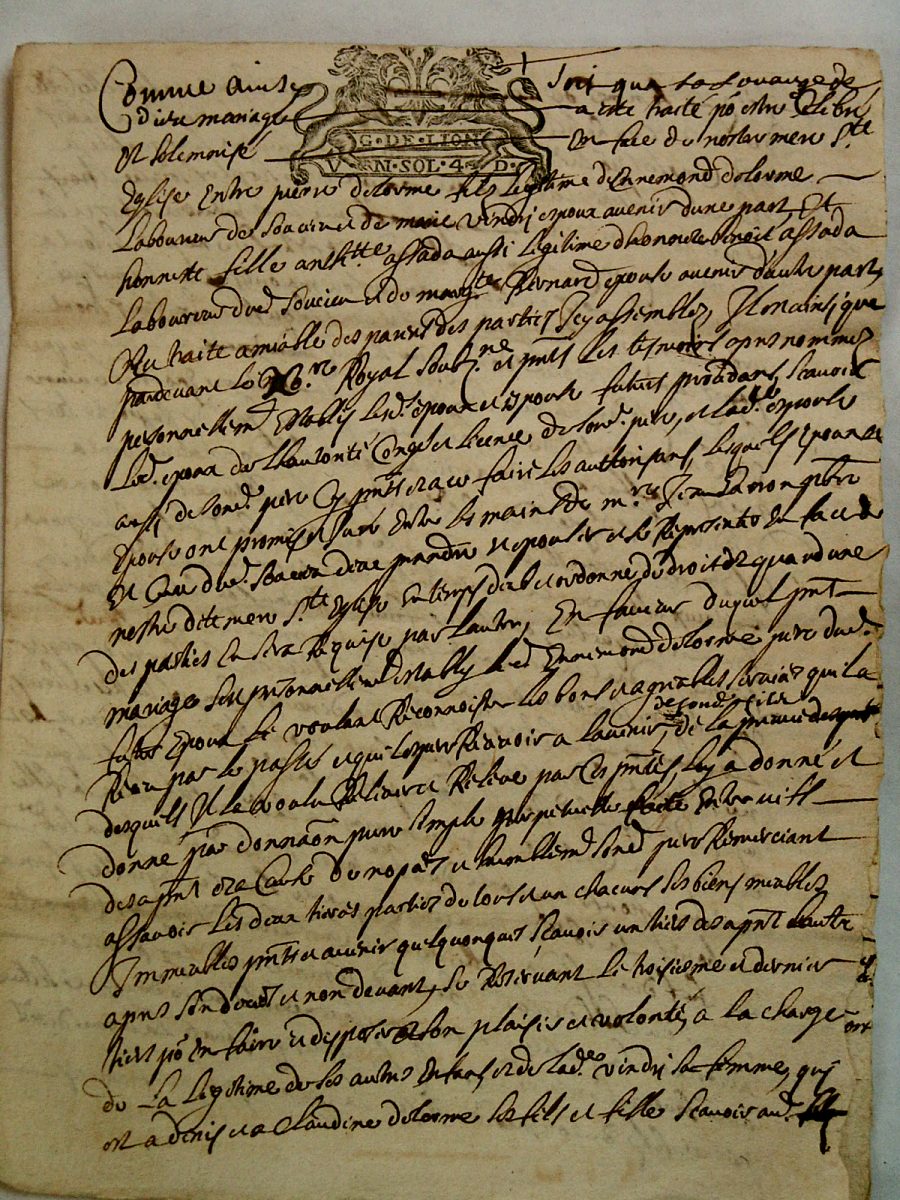 Comme ainsi soit que a la Louange de
dieu mariage a este traité po estre Celebré
G·DE·LION
et solemnisé en face de nostre mere Ste
VN·SOL·4·D·
Eglise Entre pierre delorme fils legitime dEnnemond delorme
Laboureur de Soucieu et de marie vindri epoux avenir dune part, Et
honneste fille anthtte assada aussi legitime dhonneste benoit assada
Laboureur dud Soucieu et de margte Bernard epouse avenir dautre part,
Au traité amiable des parens des parties Icy assemblez, Il on ainsi que
pardevant le No.re Royal Soubz.ne et pnts les tesmoins apres nommez
personnellemt Establis lesd. epoux et epouse futurs procedans, Scavoir
Led. epoux de Lhautorité Congé et licence de sond. pere, et lad.e epouse
aussi de sond. pere Cy pnts et a ce faire les authorisans, lesquels epoux et
Epouse ont promis et Juré Entre les mains de m.re Jean pbtre
et Curé dud. Soucieu de se prendre et epouser et se Representer En face de
nostre dite mere S.te Eglise En temps deub et ordonne de droit et quand une
des parties En sera Requise par lautre, En faveur duquel pnt
mariage sest personnellemt establi led. Ennemond delorme pere dud.
futur Epoux Le voulant Reconnoistre les bons et agreables services quil a
de sond. fils
Receu par le passé et quil espere Recevoir a lavenir, de la preuve
desquels Il la voulu Relever et Releve par Ces pntes, luy a donné et
donne par donnaon pure simple perpetuelle faite Entre vifs
des apnt et a Cause de nopces et humblemt sond. pere Remerciant
assavoir les deux tierses parties de tous et un chacuns ses biens meubles
Immeubles pnts et avenir quelquonques Scavoir un tiers des apnt Lautre
apres son deces et non devant, se Reservant Le troisieme et dernier
tiers po En faire et disposer a son plaisir et volonté, a la charge
de La Legitime de ses autres Enfans et de lad.e vindri sa femme, qui
ont a denis et a Claudine delorme ses fils et fille Scavoir aud.